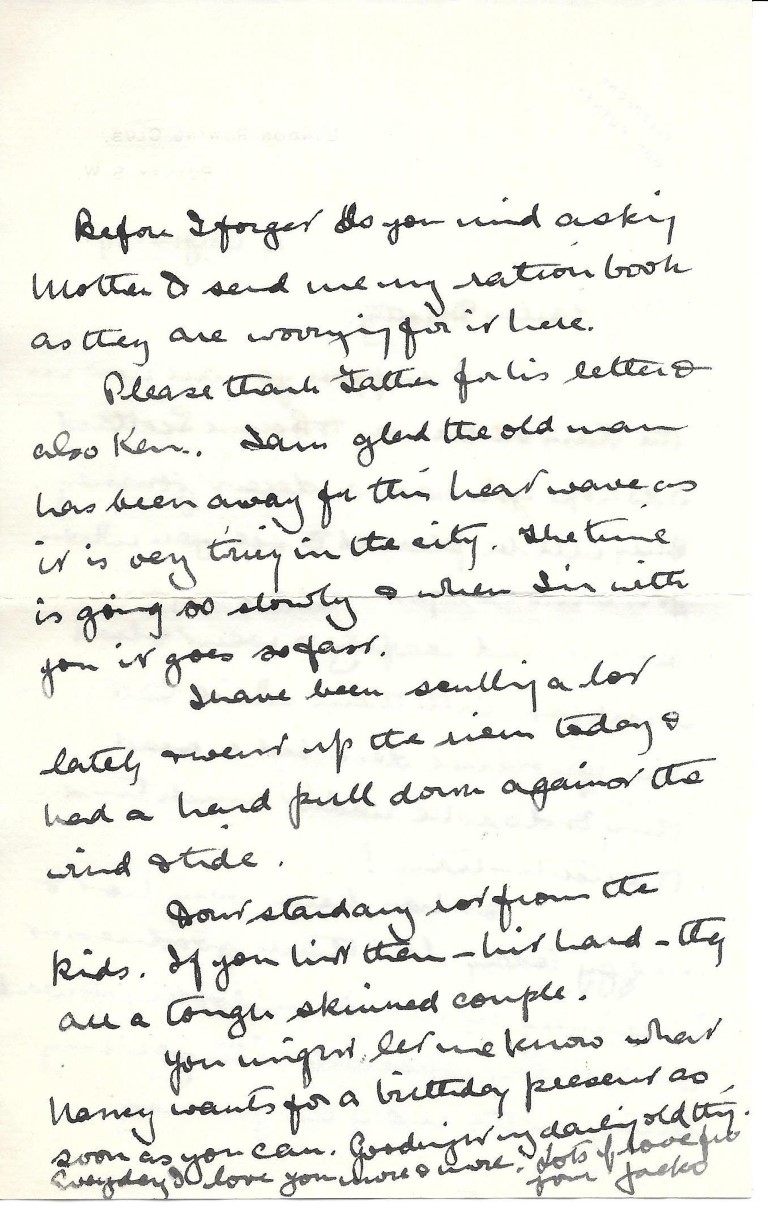 Before I forget Do you mind asking
Mother to send me my ration book
as they are worrying for it here.
Please thank Father for his letter &
also Ken. I am glad the old man
has been away for this heat wave as
it is very trying in the city. The time
is going so slowly & when I'm with
you it goes so fast.
I have been sculling a lot
lately & went up the river today &
had a hard pull down against the
wind & tide.
Dont stand any rot from the
kids. If you hit them - hit hard - they
are a tough skinned couple.
You might let me know what
Nancy wants for a birthday present as
soon as you can. Goodnight my darling old thing.
Everyday I love you more & more. Lots of love from
your Jacko